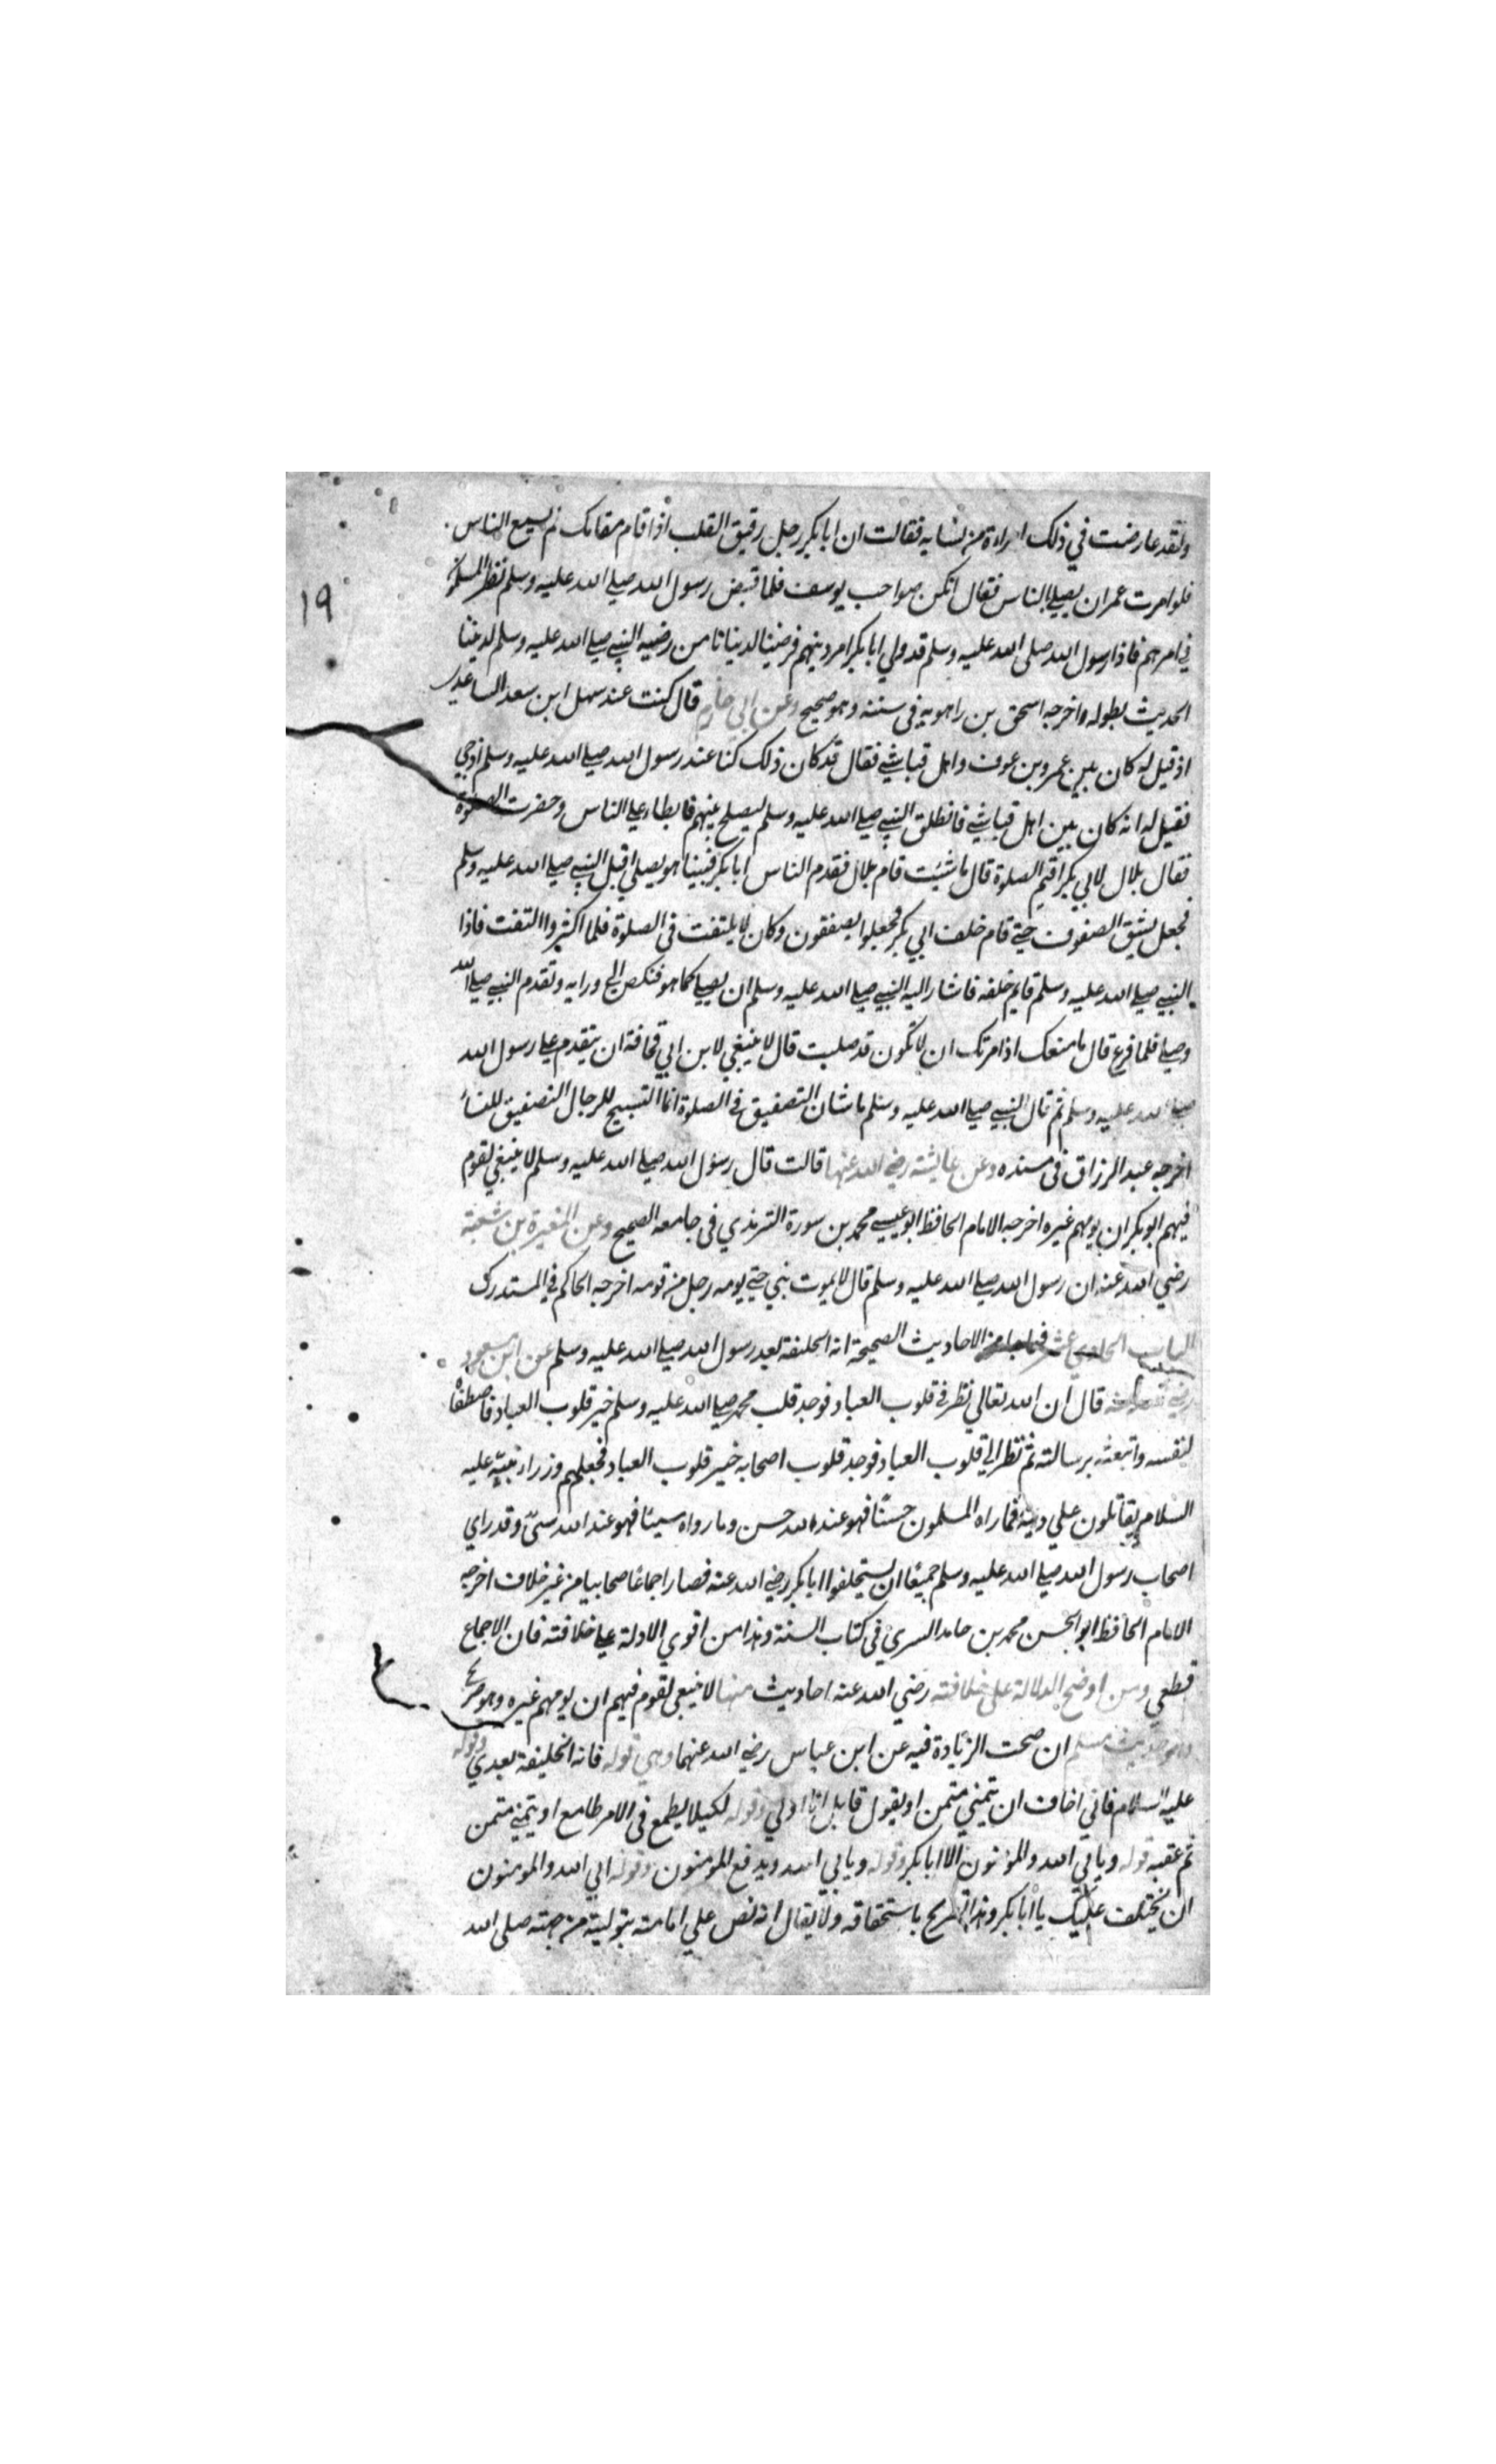 ولقد عارضت في ذلك امراة من نسايه فقالت ان ابا بكر رجل رقيق القلب اذا قام مقامك لم يسمع الناس
فلو امرت عمر ان يصلي بالناس فقال انكن صواحب يوسف فلما قبض رسول الله صلي الله عليه وسلم نظر المسلمون
١٩
في امرهم فاذا رسول الله صلى الله عليه وسلم قد ولي ابا بكر امر دينهم فرضينا لدنيانا من رضيه النبي صلي الله عليه وسلم لديننا
الحديث بطوله واخرجه اسحق بن راهويه في سننه وهو صحيح وعن ابي حازم قال كنت عند سهل ابن سعد الساعدي
اذ قيل له كان بين عمرو بن عوف واهل قبا شي فقال قد كان ذلك كنا عند رسول الله صلي الله عليه وسلم اذ جي
فقيل له انه كان بين اهل قبا شي فانطلق النبي صلي الله عليه وسلم ليصلح بينهم فابطاء علي الناس وحضرت الصلوة
فقال بلال لابي بكر اقيم الصلوة قال ما شئت قام بلال فقدم الناس ابا بكر فبينا هو يصلي اقبل النبي صلي الله عليه وسلم
فجعل يشق الصفوف حتي قام خلف ابي بكر فجعلوا يصفقون وكان لا يلتفت في الصلوة فلما اكثروا التفت فاذا
النبي صلي الله عليه وسلم قايم خلفه فاشار اليه النبي صلي الله عليه وسلم ان يصلي كما هو فنكص الي ورايه وتقدم النبي صلي الله
وصلي فلما فرغ قال ما منعك اذ امرتك ان لا تكون قد صليت قال لا ينبغي لابن ابي قحافة ان يتقدم علي رسول الله
صلي الله عليه وسلم ثم قال النبي صلي الله عليه وسلم ما شان التصفيق في الصلوة انما التسبيح للرجال التصفيق للنسا
اخرجه عبد الرزاق في مسنده وعن عايشة رضي الله عنها قالت قال رسول الله صلي الله عليه وسلم لا ينبغي لقوم
فيهم ابو بكر ان يومهم غيره اخرجه الامام الحافظ ابو عيسي محمد بن سورة الترمذي في جامعه الصحيح وعن المغيرة بن شعبة
رضي الله عنه ان رسول الله صلي الله عليه وسلم قال لا يموت نبي حتي يومه رجل من قومه اخرجه الحاكم في المستدرك
الباب الحادي عشر فيما جا من الاحاديث الصحيحة انه الخليفة بعد رسول الله صلي الله عليه وسلم عن ابن مسعود
رضي الله عنه قال ان الله تعالي نظر في قلوب العباد فوجد قلب محمد صلي الله عليه وسلم خير قلوب العباد فاصطفاه
لنفسه وابتعثه برسالته ثم نظر الي قلوب العباد فوجد قلوب اصحابه خير قلوب العباد فجعلهم وزراء نبيه عليه
السلام يقاتلون علي دينه فما راه المسلمون حسنًا فهو عند الله حسن وما رواه سيئا فهو عند الله سيّ وقد راي
اصحاب رسول الله صلي الله عليه وسلم جميعًا ان يستخلفوا ابا بكر رضي الله عنه فصار اجماعًا صحابيا من غير خلاف اخرجه
الامام الحافظ ابو الحسن محمد بن حامد السري في كتاب السنة وهذا من اقوي الادلة علي خلافته فان الاجماع
قطعي ومن اوضح الدلالة علي خلافته رضي الله عنه احاديث منها لا ينبغي لقوم فيهم ان يومهم غيره وهو صريح
حديث مسلم ان صحت الزيادة فيه عن ابن عباس رضي الله عنهما وهي قوله فانه الخليفة بعدي وقوله
عليه السلام فاني اخاف ان يتمني متمن او يقول قايل انا اولي وقوله لكيلا يطمع في الامر طامع او يتمني متمن
ثم عقبه قوله ويابي الله والمؤنون الا ابا بكر وقوله ويابي الله ويدفع المومنون وقوله ابي الله والمومنون
ان يختلف عليك يا ابا بكر وهذا تصريح باستحقاقه ولا يقال انه نص علي امامته بتوليته من جهته صلي الله